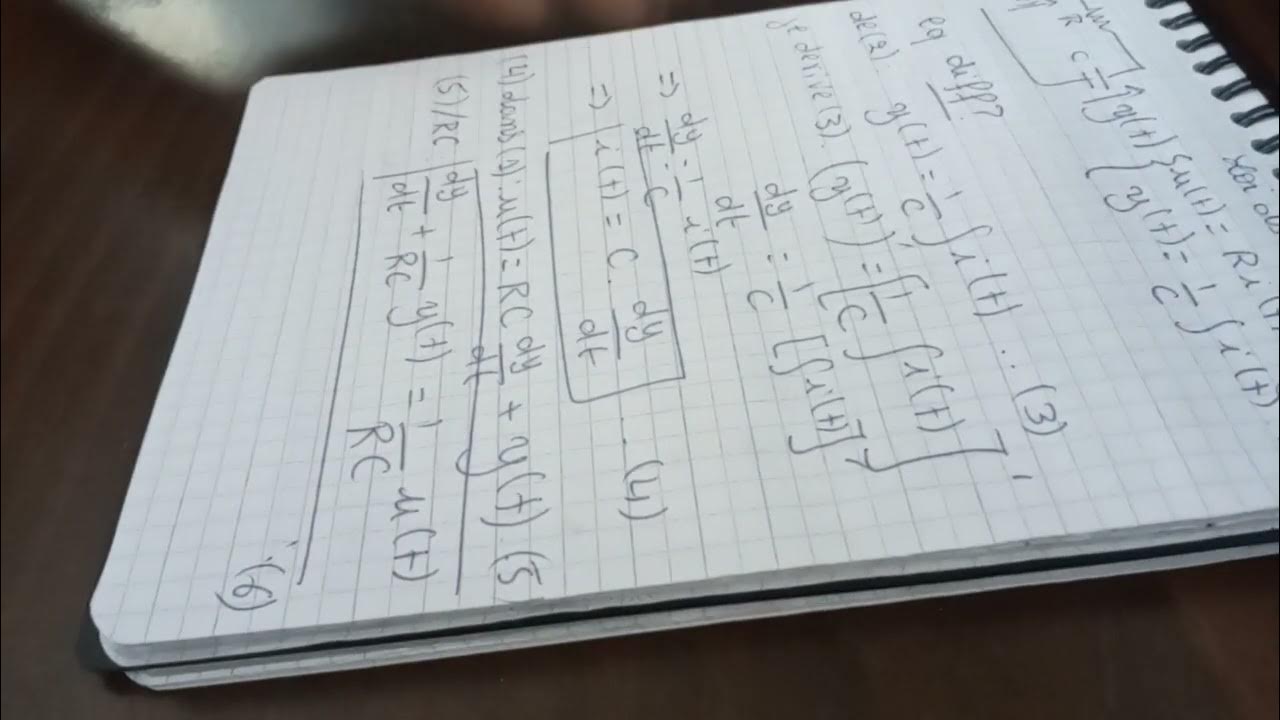 u(t) = Ri(t
R C y(t) y(t) = 1/C ∫ i(t)
eq diff?
de(2). y(t) = 1/C ∫ i(t) ... (3)
je derive (3). (y(t))' = [1/C ∫ i(t)]'
dy/dt = 1/C [∫ i(t)]'
=> dy/dt = 1/C i(t)
=> i(t) = C. dy/dt .... (4)
(4) dans (1): u(t) = RC dy/dt + y(t). (5
(5)/RC dy/dt + 1/RC y(t) = 1/RC u(t)
...(6)